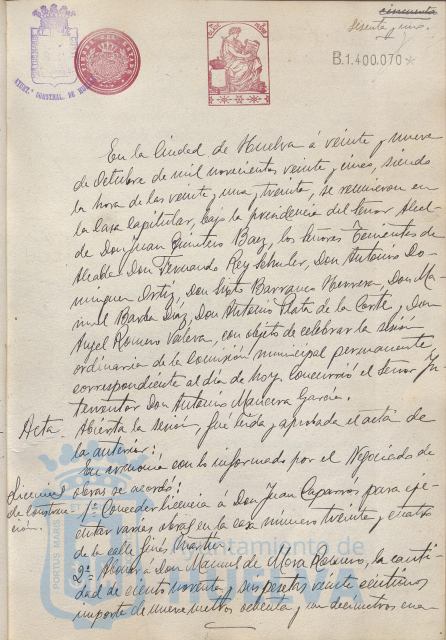 cincuenta
sesenta y uno.
B.1.400.070*
En la Ciudad de Huelva á veinte y nueve
de Octubre de mil novecientos veinte y cinco, siendo
la hora de las veinte y una y treinta, se reunieron en
la Casa Capitular, bajo la presidencia del señor Alcal-
de Don Juan Quintero Baez, los señores Tenientes de
Alcalde Don Fernando Rey Schuler, Don Antonio Do-
minguez Ortiz, Don Sixto Barranco Herrera, Don Ma-
nuel Barba Diaz, Don Antonio Plata de la Corte, y Don
Angel Romero Valera, con objeto de celebrar la sesión
ordinaria de la Comisión municipal permanente,
correspondiente al día de hoy. Concurrió el señor In-
terventor Don Antonio García.
Acta Abierta la sesión, fué leída y aprobada el acta de
la anterior.
En armonia con lo informado por el Negociado de
Licencias obras se acordó:
de construc- 1º Conceder licencia á Don Juan Caparrós para eje-
ción. cutar varias obras en la casa numero treinta y cuatro
de la calle Ginés Martin.
2º Abonar á Don Manuel de Mora Romero, la canti-
dad de ciento noventa y seis pesetas veinte centimos
importe de nueve metros ochenta y un decimetros cua-
PORTUS MARIS
Ayuntamiento de
HUELVA